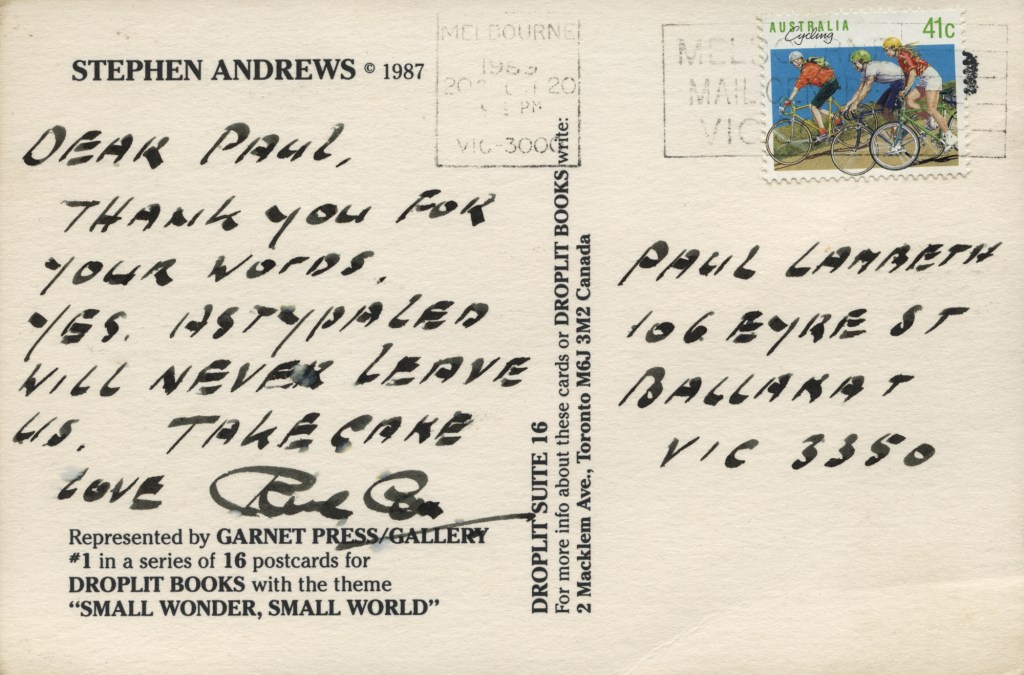 STEPHEN ANDREWS © 1987
DEAR PAUL,
THANK YOU FOR
YOUR WORDS,
YES. ASTYPALED
WILL NEVER LEAVE
US. TAKE CARE
LOVE
Represented by GARNET PRESS/GALLERY
#1 in a series of 16 postcards for
DROPLIT BOOKS with the theme
"SMALL WONDER, SMALL WORLD"
DROPLIT SUITE 16
For more info about these cards or DROPLIT BOOKS write:
2 Macklem Ave., Toronto M6J 3M2 Canada
MELBOURNE
1989
PM
VIC-3000
AUSTRALIA 41c
Cycling
VIC
PAUL LAMBETH
106 EYRE ST
BALLARAT
VIC 3350